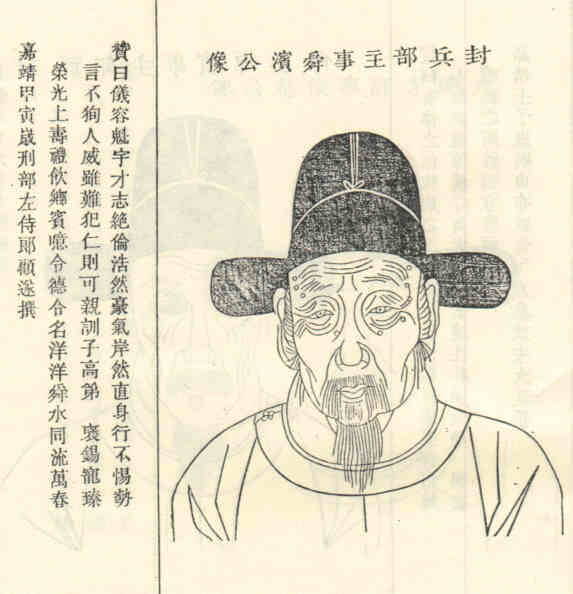 封兵部主事舜濱公像
贊曰儀容魁宇才志絶倫浩然豪氣岸然直身行不惕勢
言不狥人威雖難犯仁則可親訓子高第 襃錫寵臻
榮光上壽禮飲鄉賓噫令德令名洋洋舜水同流萬春
嘉靖甲寅歲刑部左侍郎顧遂撰